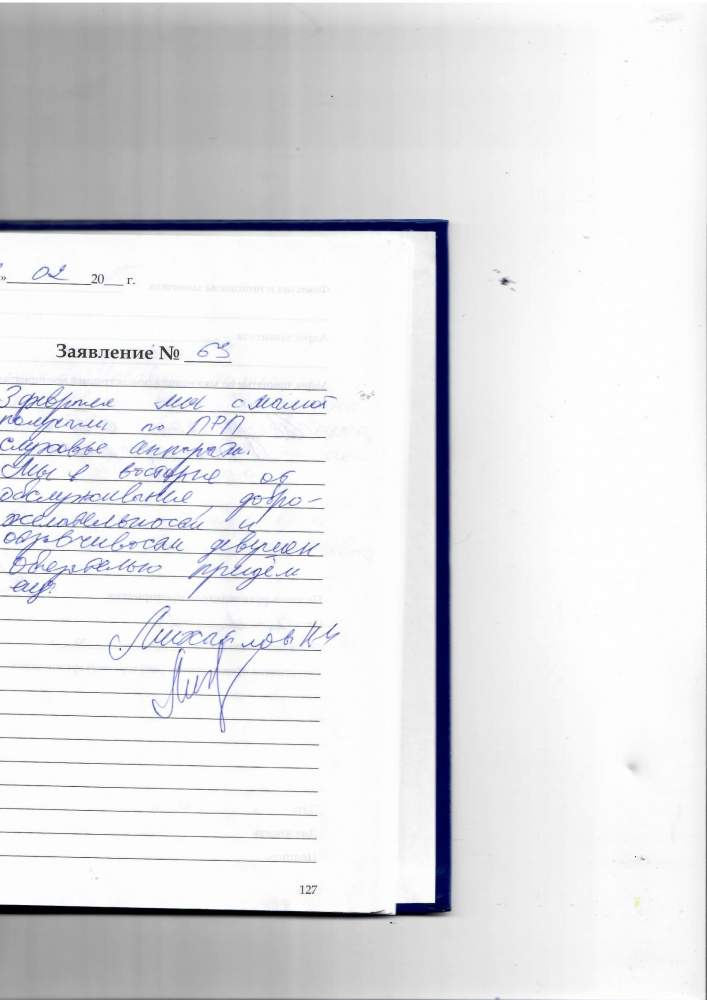 » 02 20 г.
Заявление № 63
3 февраля мы с мамой
получили по ПРП
слуховые аппараты.
Мы в восторге от
обслуживания, добро-
желательности и
отзывчивости девушек
Обязательно придём
ещё.
Михайлов
127